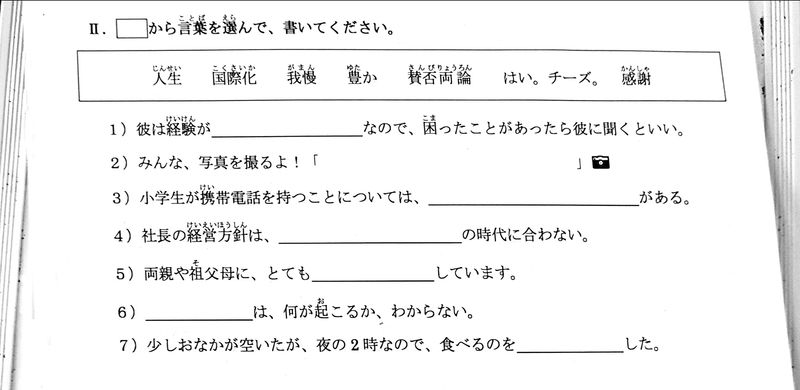 Ⅱ. から言葉を選んで、書いてください。
人生 国際化 我慢 豊か 賛否両論 はい。チーズ。 感謝
1）彼は経験が＿＿＿＿＿＿＿＿なので、困ったことがあったら彼に聞くといい。
2）みんな、写真を撮るよ！「 」
3）小学生が携帯電話を持つことについては、＿＿＿＿＿＿＿＿がある。
4）社長の経営方針は、＿＿＿＿＿＿＿＿の時代に合わない。
5）両親や祖父母に、とても＿＿＿＿＿＿＿＿しています。
6）＿＿＿＿＿＿＿＿は、何が起こるか、わからない。
7）少しおなかが空いたが、夜の2時なので、食べるのを＿＿＿＿＿＿＿＿した。